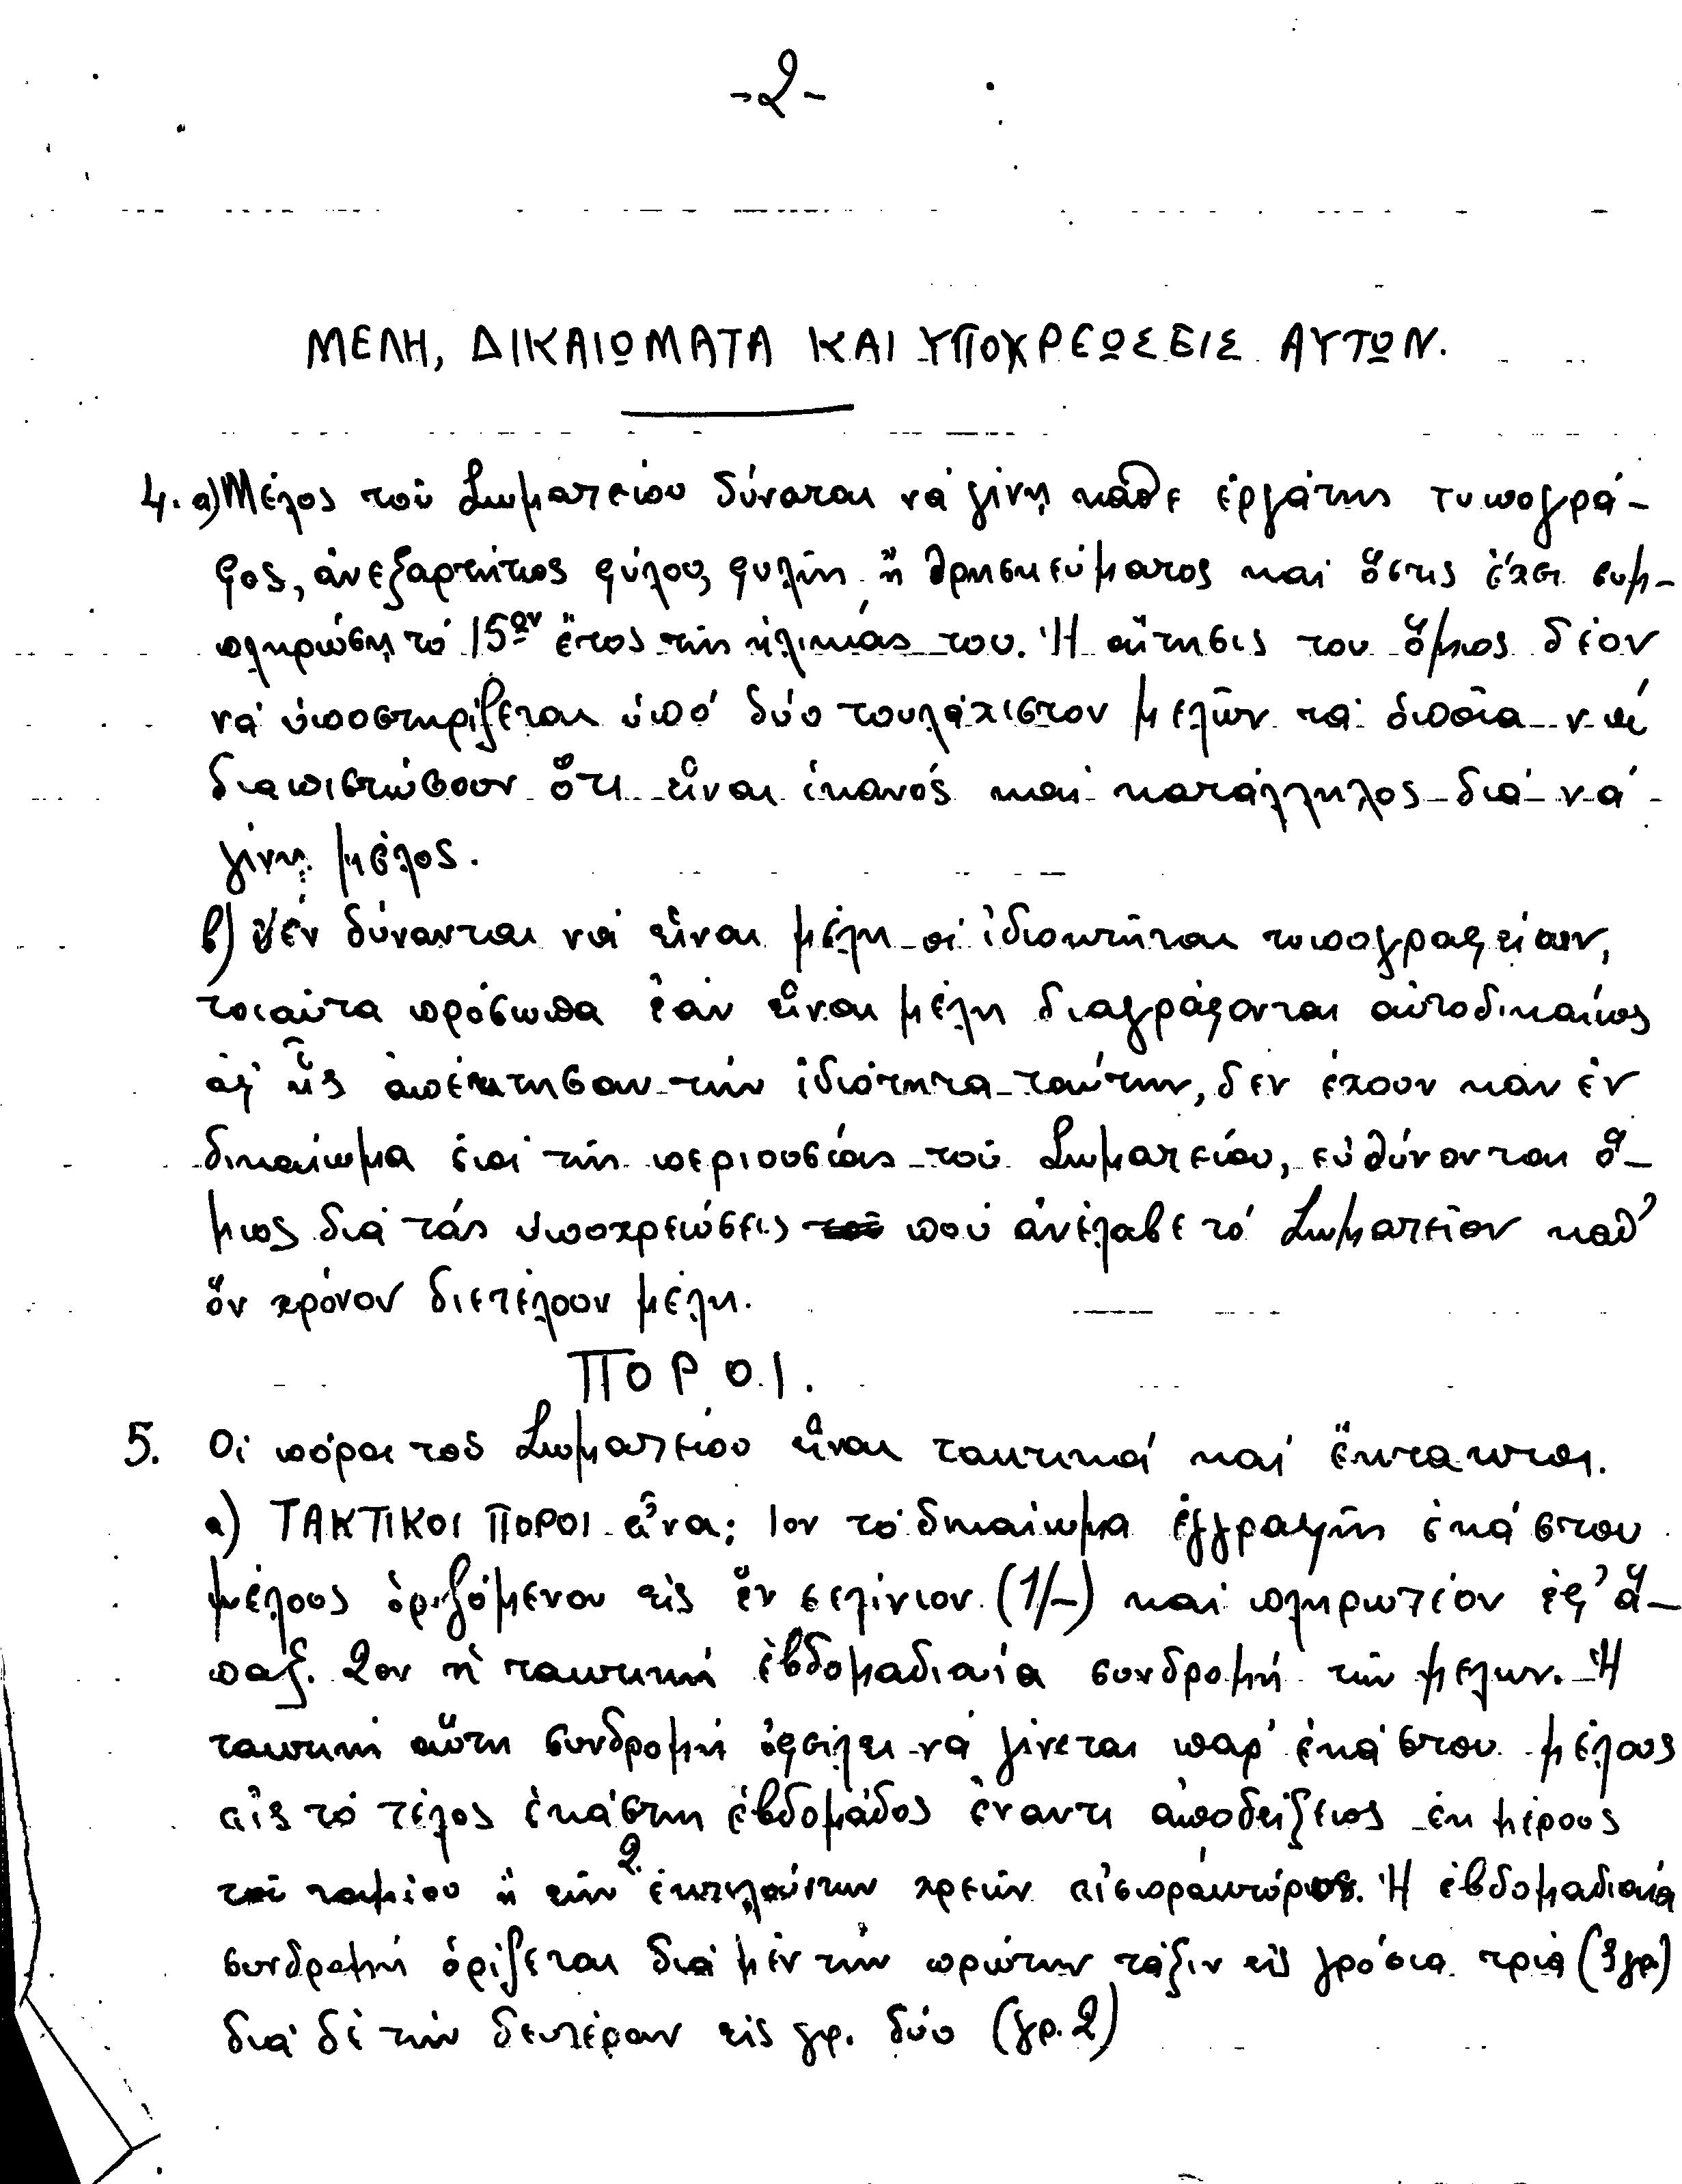 -2-
ΜΕΛΗ, ΔΙΚΑΙΩΜΑΤΑ ΚΑΙ ΥΠΟΧΡΕΩΣΕΙΣ ΑΥΤΩΝ.
4. α) Μέλος τοῦ Σωματείου δύναται νά γίνῃ κάθε ἐργάτης τυπογρά-
φος, ἀνεξαρτήτως φύλου, φυλῆς ἤ θρησκεύματος καί ὅστις ἔχει συμ-
πληρώσῃ τό 15ον ἔτος τῆς ἡλικίας του. Ἡ αἴτησις του ὅμως δέον
νά ὑποστηρίζεται ὑπό δύο τουλάχιστον μελῶν τά ὁποῖα νά
διαπιστώσουν ὅτι εἶναι ἱκανός καί κατάλληλος διά νά
γίνῃ μέλος.
β) Δέν δύνανται νά εἶναι μέλη οἱ ἰδιοκτῆται τυπογραφείων,
τοιαῦτα πρόσωπα ἐάν εἶναι μέλη διαγράφονται αὐτοδικαίως
ἀφ' ἧς ἀπέκτησαν τήν ἰδιότητα ταύτην, δέν ἔχουν κάν ἐν
δικαίωμα ἐπί τῆς περιουσίας τοῦ Σωματείου, εὐθύνονται ὅ-
μως διά τάς ὑποχρεώσεις πού ἀνέλαβε τό Σωματεῖον καθ'
ὅν χρόνον διετέλουν μέλη.
ΠΟΡΟΙ.
5. Οἱ πόροι τοῦ Σωματείου εἶναι τακτικοί καί ἔκτακτοι.
α) ΤΑΚΤΙΚΟΙ ΠΟΡΟΙ εἶναι: 1ον τό δικαίωμα ἐγγραφῆς ἑκάστου
μέλους ὁριζόμενον εἰς ἕν σελίνιον (1/-) καί πληρωτέον ἐφ' ἅ-
παξ. 2ον ἡ τακτική ἑβδομαδιαία συνδρομή τῶν μελων. Ἡ
τακτική αὕτη συνδρομή ὀφείλει νά γίνεται παρ' ἑκάστου μέλους
εἰς τό τέλος ἑκάστης ἑβδομάδος ἔναντι ἀποδείξεως ἐκ μέρους
τοῦ ταμίου ἤ τῶν 2 ἐκτελούντων χρέη εἰσπρακτόρων. Ἡ ἑβδομαδιαία
συνδρομή ὁρίζεται διά μέν τήν πρώτην τάξιν εἰς γρόσια τρία (3γρ)
διά δέ τήν δευτέραν εἰς γρ. δύο (γρ. 2)